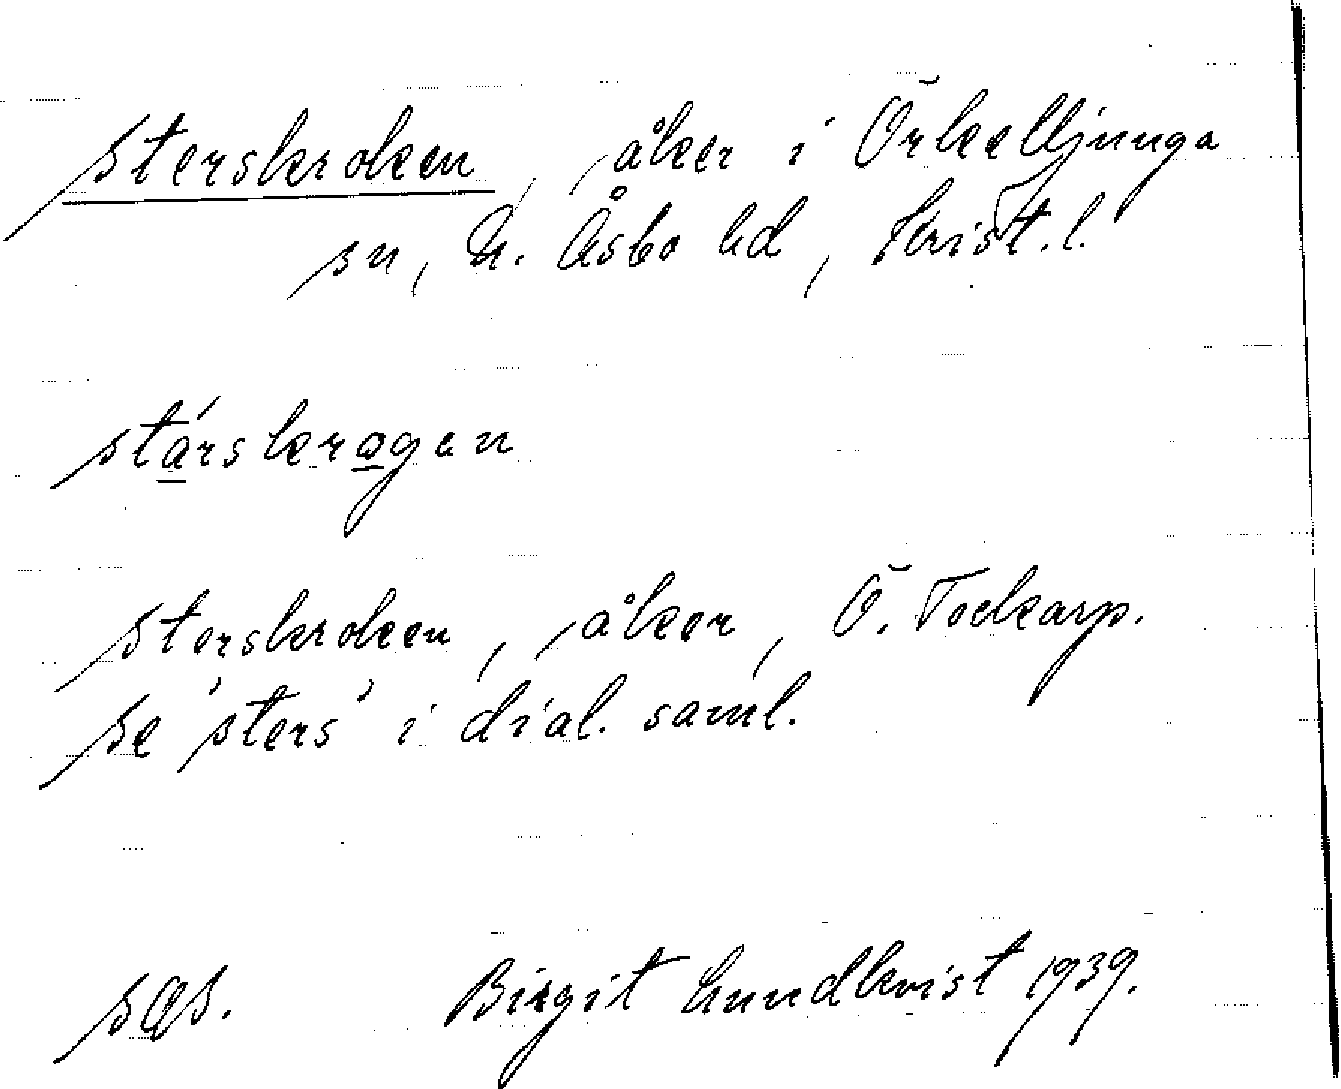 Sterskroken, åker i Örkelljunga
sn, N. Åsbo hd, Krist. l.
stárskrågen
Sterskroken, åker, Ö. Tockarp.
Se 'sters' i dial. saml.
sgs. Birgit Lundkvist 1939.